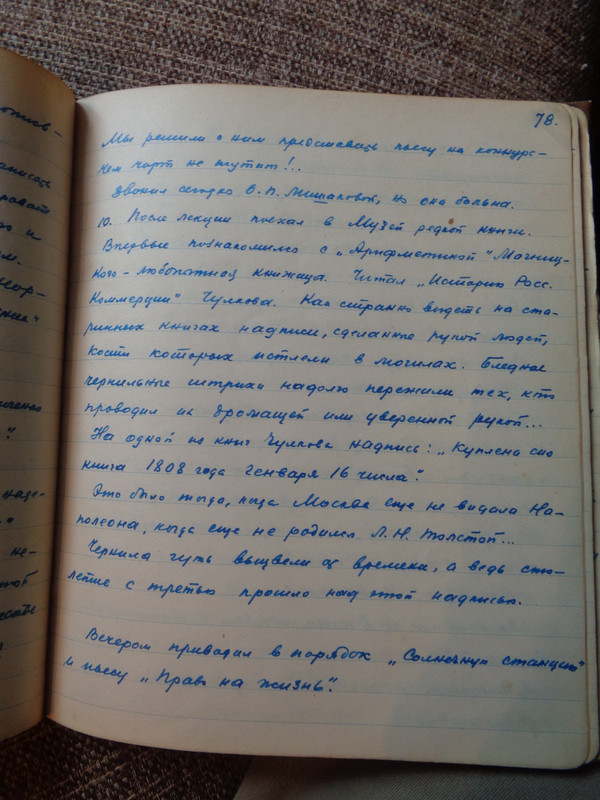 78.
Мы решили с ним представить пьесу на конкурс –
чем чорт не шутит!..
Звонил сегодня О. П. Мишаковой, но она больна.
10. После лекции поехал в Музей редкой книги.
Впервые познакомился с „Арифметикой" Магниц-
кого – любопытная книжица. Читал „Историю Росс.
Коммерции" Чулкова. Как странно видеть на ста-
ринных книгах надписи, сделанные рукой людей,
кости которых истлели в могилах. Бледные
чернильные штрихи надолго пережили тех, кто
проводил их дрожащей или уверенной рукой...
На одной из книг Чулкова надпись: „Куплена сия
книга 1808 года генваря 16 числа".
Это было тогда, когда Москва еще не видала На-
полеона, когда еще не родился Л. Н. Толстой...
Чернила чуть выцвели от времени, а ведь сто-
летие с третью прошло над этой надписью.
Вечером приводил в порядок „Солнечную станцию"
и пьесу „Право на жизнь".